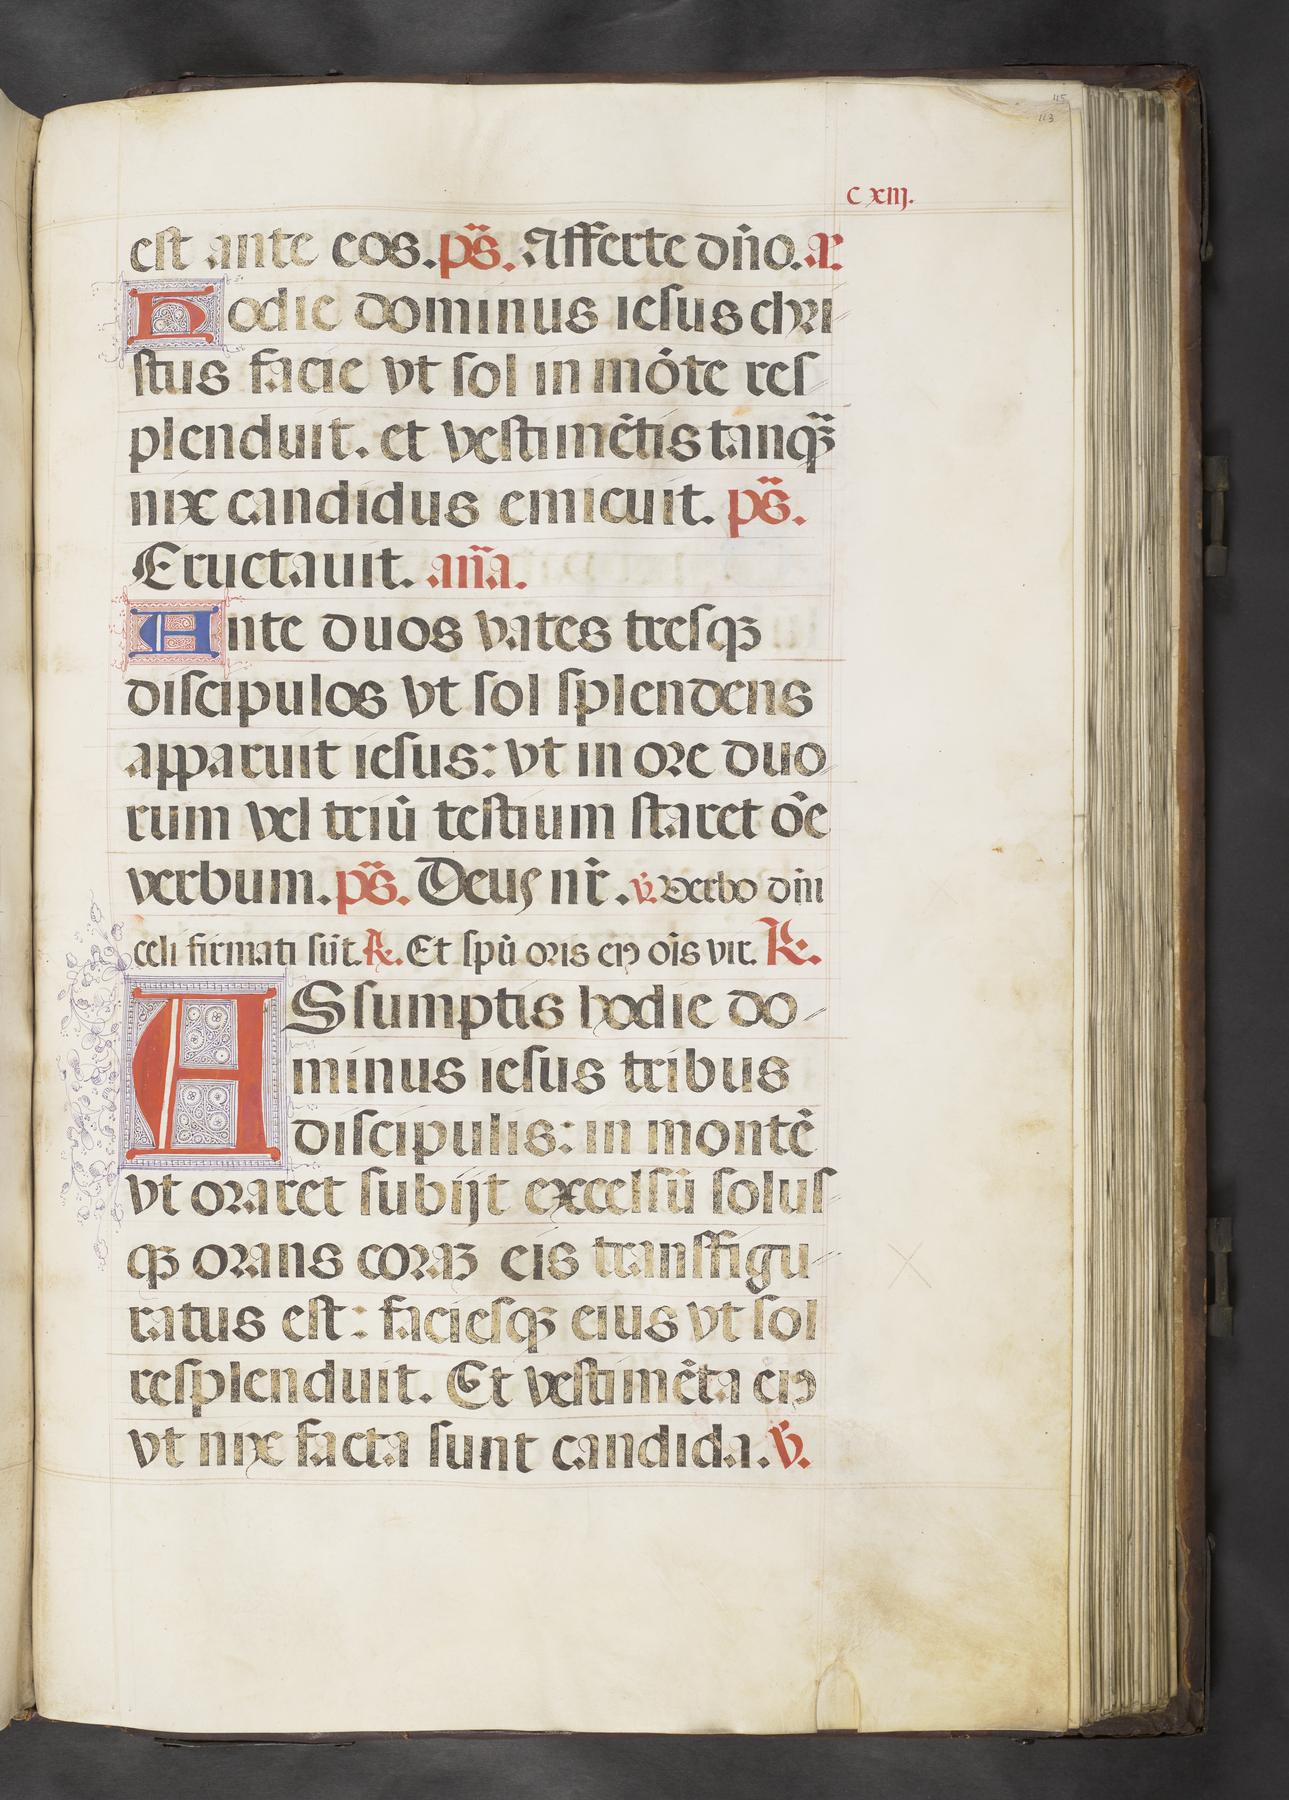 115
113
C xiij.
est ante eos. ps̄. Afferte dn̄o. a.
Hodie dominus iesus chri
stus facie vt sol in mōte res
plenduit. et vestimētis tanqꝫ
nix candidus emicuit. ps̄.
Eructauit. an̄a.
Ante duos vates tresqꝫ
discipulos vt sol splendens
apparuit iesus: vt in ore duo
rum vel triū testium staret ōe
verbum. ps̄. Deus nr̄. v̄. Verbo dn̄i
celi firmati sūt. ℞. Et spū oris eiꝰ oīs vir. ℞.
ASsumptis hodie do
minus iesus tribus
discipulis: in montē
vt oraret subijt excelsū solus
qꝫ orans coraꝫ eis transfigu
ratus est: faciesqꝫ eius vt sol
resplenduit. Et vestimēta eiꝰ
vt nix facta sunt candida. v̄.